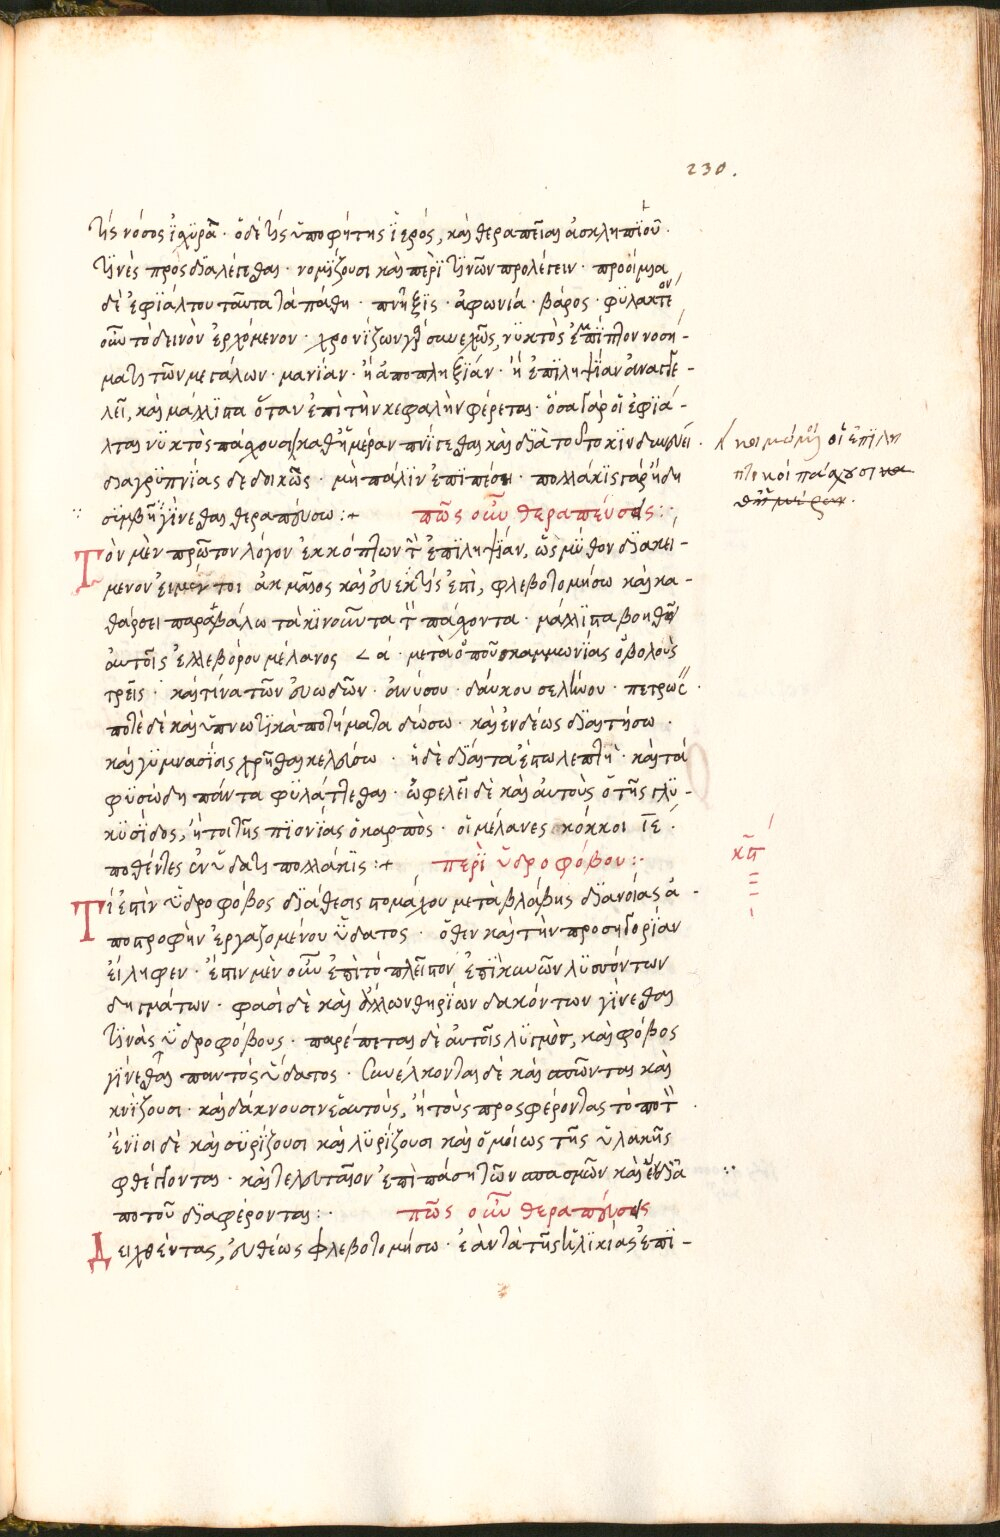 230.
τῆς νόσος ἰσχϋρὰ · ὁ δὲ τῆς ὑποφήτης ἱερός, καὶ θεραπεῖαι ἀσκληπϊοῦ ·
τϊνὲς προσδϊαλέγεσθαι · νομΐζουσι καὶ περὶ τϊνῶν προλέγειν · προοίμια
δὲ ἐφϊάλτου ταῦτα τὰ πάθη · πνῆξϊς · ἀφωνία · βάρος · φϋλακτέον
οὖν τὸ δεινὸν ἐρχόμενον · χρονίζων γὰρ συνεχῶς, νϋκτὸς ἐπϊπῖπτον νοση-
ματϊ τῶν μεγάλων · μανίαν · ἢ ἀποπληξϊάν · ἢ ἐπϊληψϊαν ἀναγγέ-
λεῖ, καὶ μάλλϊστα ὅταν ἐπὶ τὴν κεφαλὴν φέρεται · ὅσα γὰρ οἱ ἐφϊά-
λται νϋκτὸς πάσχουσι καθ' ἡμέραν πνίγεσθαι καὶ δϊὰ τοῦτο κϊνδϋνεύει ·
οἱ ἐπϊλη
πτικοί πάσχουσι κα
θ' ἡμέραν ·
δϊαγρϋπνίας δεδοικῶς · μὴ πάλϊν ἐπϊπέση · πολλάκϊς γὰρ ἤδη
σϋμβῆ γΐνεσθαι θεραπεύσω :+ πῶς οὖν θεραπεύσεις :·
Τὸν μὲν πρῶτον λόγον ἐκκόπτων τὴν ἐπϊληψϊάν, ὡς μῦθον δϊακεί-
μενον εἰ μέν τοι ἀκμαῖος καὶ εὐεκτής ἐστὶ, φλεβοτομήσω καὶ κα-
θάρσει παραβάλω τὰ κϊνοῦντα τὴν πάσχοντα · μάλλϊστα βοηθεῖ
αὐτοῖς ἐλλεβόρου μέλανος < α · μετὰ ὀποῦ σκαμμωνΐας ὀβολοὺς
τρεῖς · καὶ τίνα τῶν εὐωδῶν · ἀνύσου · δαύκου σελίνου ·
ποτὲ δὲ καὶ ὑπνωτϊκὰ ποτήματα δώσω · καὶ ἐνδέως δϊαιτήσω ·
καὶ γϋμνασΐοις χρῆσθαι κελεύσω · ἡ δὲ δΐαιτα ἔστω λεπτὴ · καὶ τὰ
φϋσώδη πάντα φϋλάττεσθαι · ὠφελεῖ δὲ καὶ αὐτοὺς ὁ τῆς γλϋ-
κϋσίδος, ἤτοι τῆς πϊονΐας ὁ καρπὸς · οἱ μέλανες κόκκοι ῑε ·
ποθέντες ἐν ὕδατϊ πολλάκϊς :+ περὶ ὑδροφόβου :·
Τί ἐστὶν ὑδροφόβος δϊάθεσις στομάχου μετὰ βλάβης δϊανοίας ἀ-
ποστροφὴν ἐργαζομένου ὕδατος · ὅθεν καὶ τὴν προσηγορΐαν
εἴληφεν · ἔστιν μὲν οὖν ἐπὶ τὸ πλεῖστον ἐπὶ κυνῶν λϋσσόντων
δηγμάτων · φασὶ δὲ καὶ ἄλλων θηρΐων δακόντων γΐνεσθαι
τϊνὰς ὑδροφόβους · παρέπεται δὲ αὐτοῖς λϋγμὸν, καὶ φόβος
γΐνεσθαι παντὸς ὕδατος · Συνέλκονται δὲ καὶ σπῶνται καὶ
κνΐζουσι · καὶ δάκνουσιν ἑαυτούς, ἢ τοὺς προσφέροντας τὸ ποτὸν ·
ἔνϊοι δὲ καὶ σϋρΐζουσι καὶ λϋρΐζουσι καὶ ὁμοίως τῆς ὑλακῆς
φθέγγονται · καὶ τελευταῖον ἐπὶ πάση τῶν σπασμῶν καὶ ἐνδϊα
ποτοῦ δϊαφέρονται :· πῶς οὖν θεραπεύσεις
Δειχθέντας, εὐθέως φλεβοτομήσω · ἐὰν τὰ τῆς ἡλϊκίας ἐπϊ-